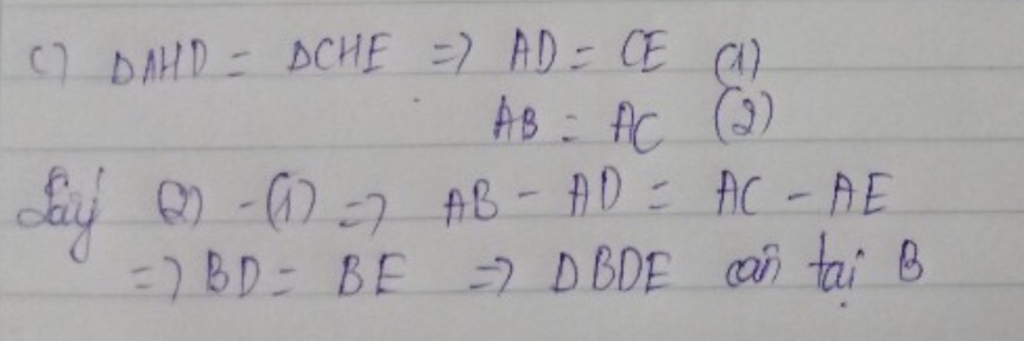 c) ΔAHD = ΔCHE => AD = CE (1)
AB = AC (2)
Lấy (2) - (1) => AB - AD = AC - AE
=> BD = BE => ΔBDE cân tại B